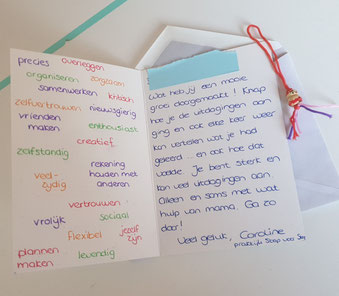 precies overleggen
organiseren zorgzaam
samenwerken kritisch
zelfvertrouwen nieuwsgierig
vrienden maken enthousiast
creatief
zelfstandig
veel-zijdig rekening houden met anderen
vertrouwen
vrolijk sociaal
flexibel jezelf zijn
plannen maken levendig
Wat heb jij een mooie
groei doorgemaakt! Knap
hoe je de uitdagingen aan
ging en ook elke keer weer
kon vertellen wat je had
geleerd ... en ook hoe dat
voelde. Je bent sterk en
kan veel uitdagingen aan.
Alleen en soms met wat
hulp van mama. Ga zo
door!
Veel geluk, Caroline
praktijk Stap voor